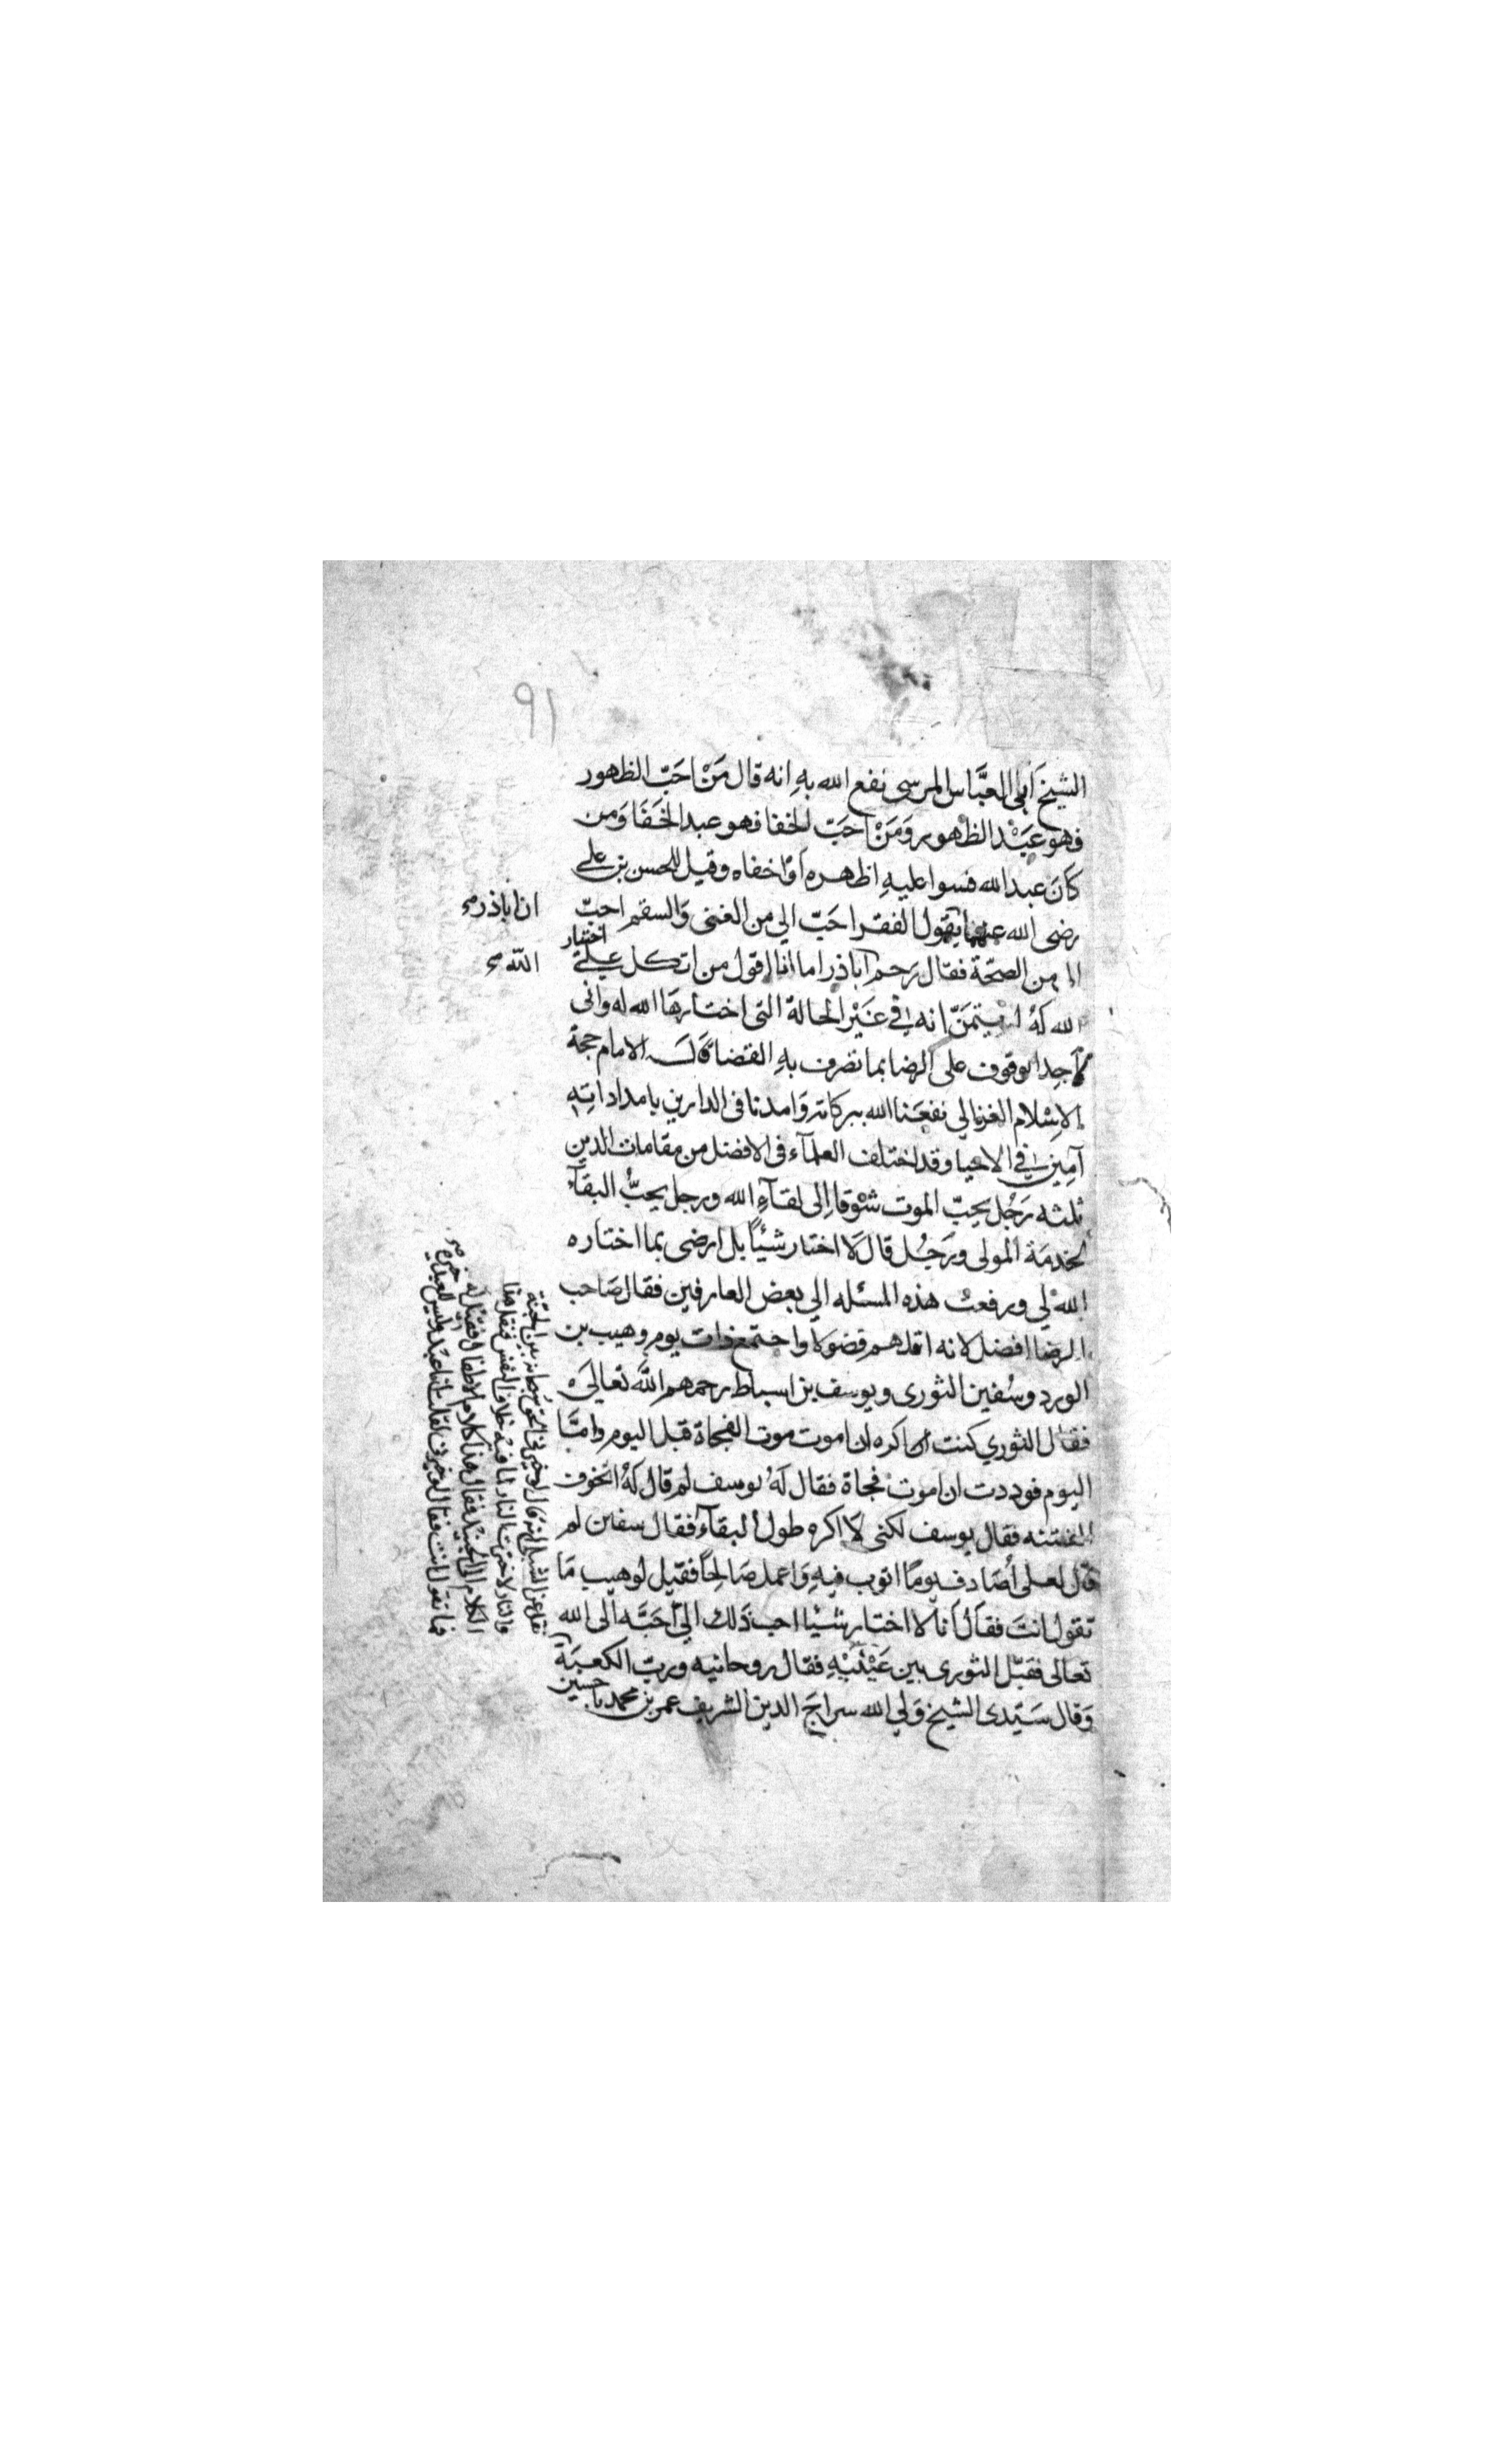 91
الشيخ ابى العبَّاس المرسى نفع الله بهِ انه قال مَنْ احَبّ الظهور
فهو عَبْد الظهور وَمَنْ احَبّ الخفا فهو عبد الخَفَا وَمن
كانَ عبد الله فسوا عليهِ اظهره اوْ اخفاه وقيل للحسن بن على
رضى الله عنهما يقول الفقر احَبّ الي من الغنى وَالسقم احبّ
ان اباذر صح
الى من الصحّة فقال رَحم اباذر اما انا اقول من اتكل على اختيار
الله صح
الله لهُ لم يتمَنّ انه في غَيْر الحالة التى اختارهَا الله له وانى
لاجد الوقوف على الرضا بما تصرف بهِ القضا قالـ الامام حجة
الاسْلام الغزالي نفعَنا الله ببركاته وَامدنا فى الدارين بامداداتِهِ
آمِين في الاحيا وقد اختلف العلمآء فى الافضل من مقامات الدين
ثلثه رَجُل يحِبّ الموت شوْقا اِلى لقآءِ الله ورجل يحبُّ البقآء
لخدمَة المولى ورَجُل قال لَا اختار شيْئاً بل ارضى بما اختاره
الله لي ورفعت هذه المسئله الي بعض العارفين فقال صَاحب
الرضا افضل لانه اقلهم فضولا واجتمع ذات يوم وهيب بن
الورد وسُفين الثورى ويوسف بن اسباط رحمهم الله تعالىَ
فقال الثوري كنت اكره ان اموت موت الفجاة قبل اليوم وامَّا
اليوم فوددت ان اموت فجاة فقال لَهُ يوسف لم قال لَهُ اتخوف
الفتنه فقال يوسف لكنى لَا اكره طول البقآء فقال سفين لم
قال لعلى أصَادف يومًا اتوب فيهِ وَاعمل صَالحًا فقيل لوهيب مَا
تقول انتَ فقال اَنا لا اختار شيْئا احب ذَلك اليّ احَبَّه الى الله
تعالى فقبّل الثورى بين عَيْنَيْهِ فقال روحانيه وربّ الكعبَة
وَقال سَيّدى الشيخ وَلي الله سراجَ الدين الشريف عمر بن محمد باحسين
نقل عن الشبلى انه قال لو خيرنى الحق سبحانه بين الجنّة
والنار لاخترت النار لما فيه خلاف النفس فنقل هذا
الكلام الى الجنيد فقال هذا كلام الاطفال فقيل له
فما تقول انت فقال لو خيرنى لقلت انا عبد وليس للعبد خيره صح